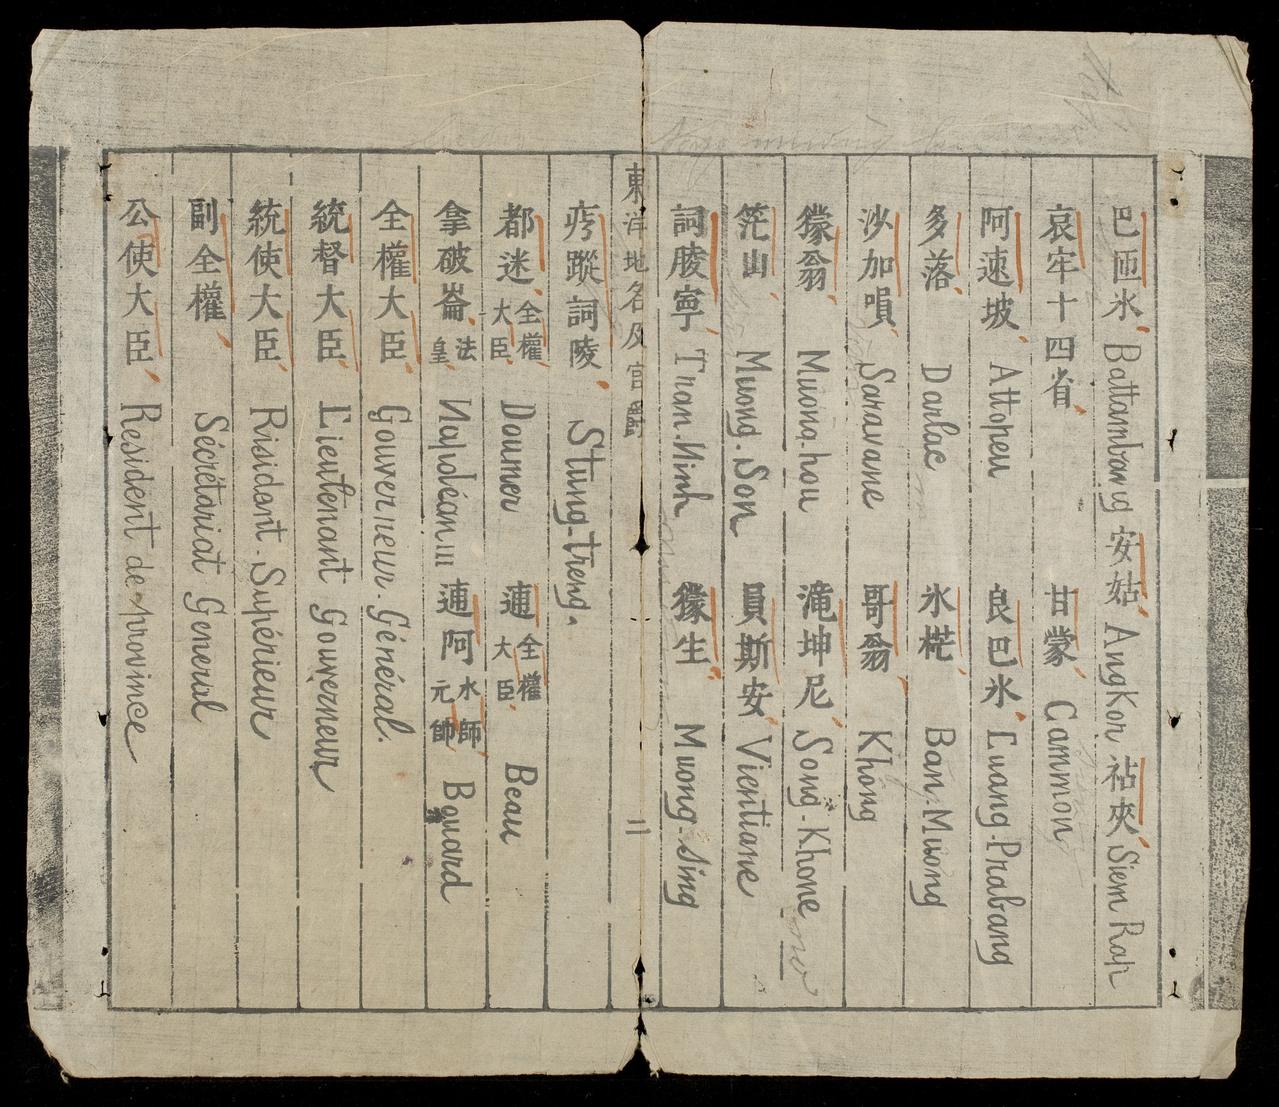 巴囬氷 Battambang 安姑 AngKor 祮夾 Siem Rap
哀牢十四省 甘蒙 Cammon
阿速坡 Attopeu 良巴氷 Luang-Prabang
多落 Darlac 氷茫 Ban-Muong
沙加嗊 Saravane 哥翁 Không
獴翁 Muong-hou 滝坤尼 Song-Khone
茫山 Muong-Son 員斯安 Vientiane
詞陵寧 Tran-Ninh 獴生 Muong-Sing
東洋地名及官爵 二
蹤詞陵 Stung-treng.
都迷 全權大臣 Doumer 逋 全權大臣 Beau
拿破崙 法皇 Napoléon III 逋阿 水師元帥 Bouard
全權大臣 Gouverneur-Général.
統督大臣 Lieutenant Gouverneur
統使大臣 Résidant-Supérieur
副全權 Sécrétariat General
公使大臣 Resident de province